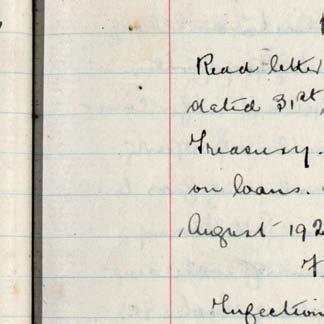 Read letter
dated 31st,
Treasury.
on loans.
August 192
Infection